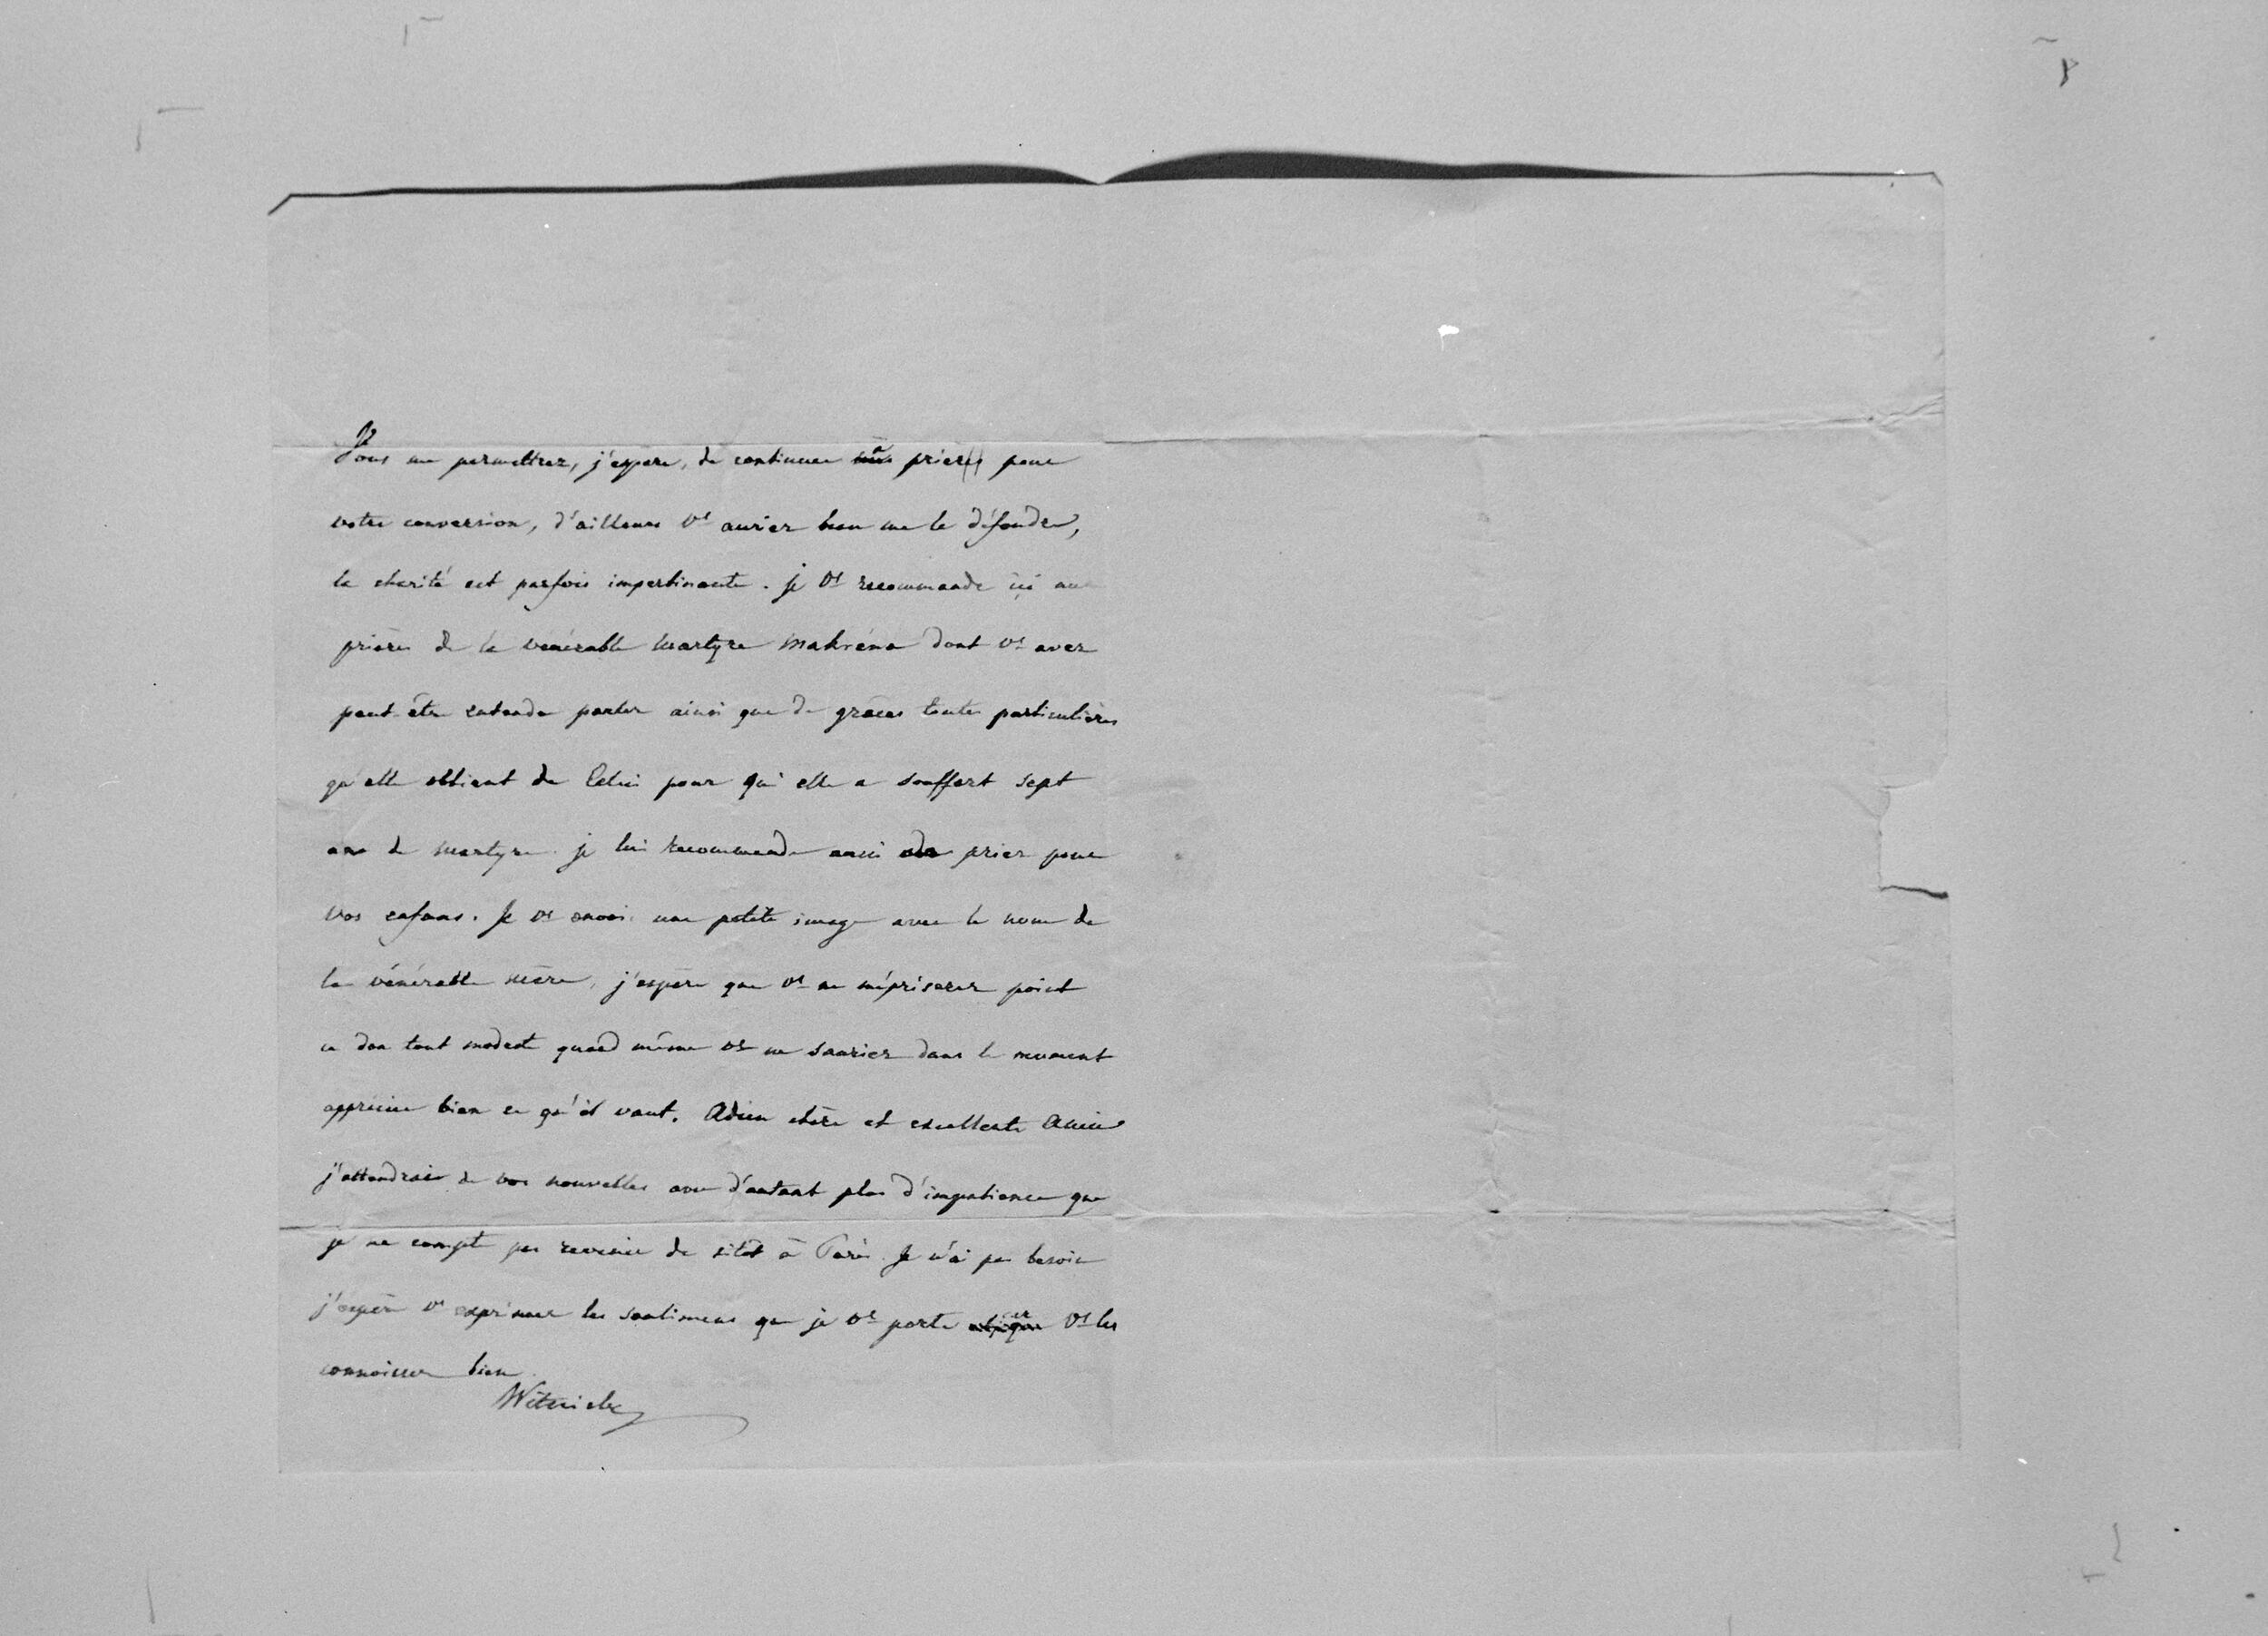 Vous me permettrez, j'espère, de continuer à prier pour
votre conversion, d'ailleurs vs auriez beau me le défendre,
la charité est parfois impertinente. Je vs recommande ici aux
prières de la vénérable martyre Makréna dont vs avez
peut-être entendu parler ainsi que de grâces toutes particulières
qu'elle obtient de Celui pour qui elle a souffert sept
ans de martyre. je lui recommande aussi de prier pour
vos enfans. Je vs envoie une petite image avec le nom de
la vénérable mère, j'espère que vs ne mépriserez point
ce don tout modeste quand même vs ne sauriez dans le moment
apprécier bien ce qu'il vaut. Adieu chère et excellente Amie
j'attendrai de vos nouvelles avec d'autant plus d'impatience que
je ne compte pas revenir de sitôt à Paris. Je n'ai pas besoin
j'espère vs exprimer les sentimens que je vs porte vs les
connoissez bien.
Witwicki